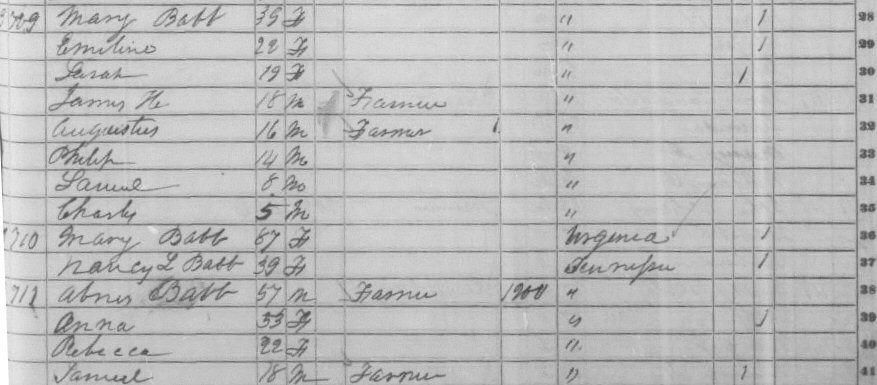 709 Mary Babb 39 F " 1 28
Emiline 22 F " 1 29
Sarah 19 F " 1 30
James H. 18 M Farmer " 31
Augustus 16 M Farmer 1 " 32
Philip 14 M " 33
Samuel 8 M " 34
Charly 5 M " 35
710 Mary Babb 67 F Virginia 1 36
Nancy L Babb 39 F Tennessee 1 37
711 Abner Babb 57 M Farmer 1200 " 38
Anna 53 F " 1 39
Rebecca 22 F " 40
Samuel 18 M Farmer " 1 41